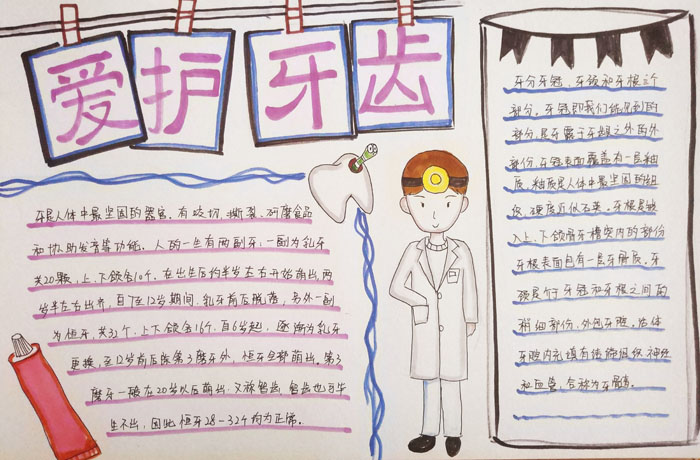 爱护牙齿
牙是人体中最坚固的器官,有咬切、撕裂、研磨食品
和协助发音等功能。人的一生有两副牙:一副为乳牙
共20颗,上、下颌各10个,在出生后约半岁左右开始萌出,两
岁半左右出齐,自6至12岁期间,乳牙前后脱落,另外一副
为恒牙,共32个,上下颌各16个,自6岁起,逐渐为乳牙
更换,至12岁前后除第3磨牙外,恒牙全部萌出。第3
磨牙一般在20岁以后萌出,又称智齿,智齿也可毕
生不出,因此恒牙28-32个均为正常。
牙分牙冠、牙颈和牙根三个
部分。牙冠即我们能见到的
部分,是牙露于牙龈之外的外
部份,牙冠表面覆盖有一层釉
质,釉质是人体中最坚固的组
织,硬度近似石英。牙根是嵌
入上、下颌骨牙槽突内的部份
牙根表面包有一层牙骨质。牙
颈是介于牙冠和牙根之间的
稍细部份,外包牙龈,活体
牙腔内充填有结缔组织、神经
和血管,合称为牙髓。